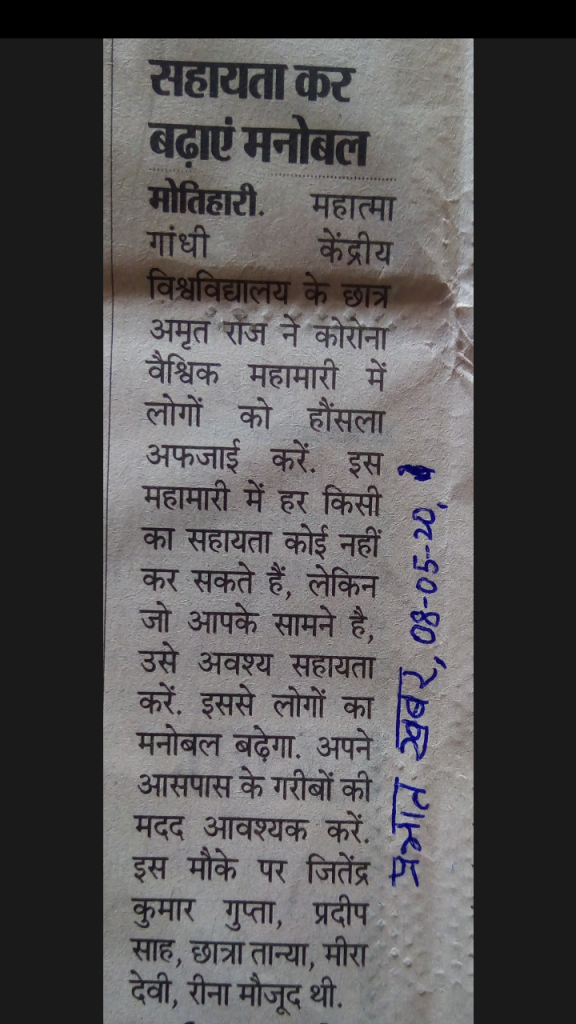 सहायता कर
बढ़ाएं मनोबल
मोतिहारी. महात्मा
गांधी केंद्रीय
विश्वविद्यालय के छात्र
अमृत राज ने कोरोना
वैश्विक महामारी में
लोगों को हौंसला
अफजाई करें. इस
महामारी में हर किसी
का सहायता कोई नहीं
कर सकते हैं, लेकिन
जो आपके सामने है,
उसे अवश्य सहायता
करें. इससे लोगों का
मनोबल बढ़ेगा. अपने
आसपास के गरीबों की
मदद आवश्यक करें.
इस मौके पर जितेंद्र
कुमार गुप्ता, प्रदीप
साह, छात्रा तान्या, मीरा
देवी, रीना मौजूद थी.
प्रभात खबर, 08-05-20,